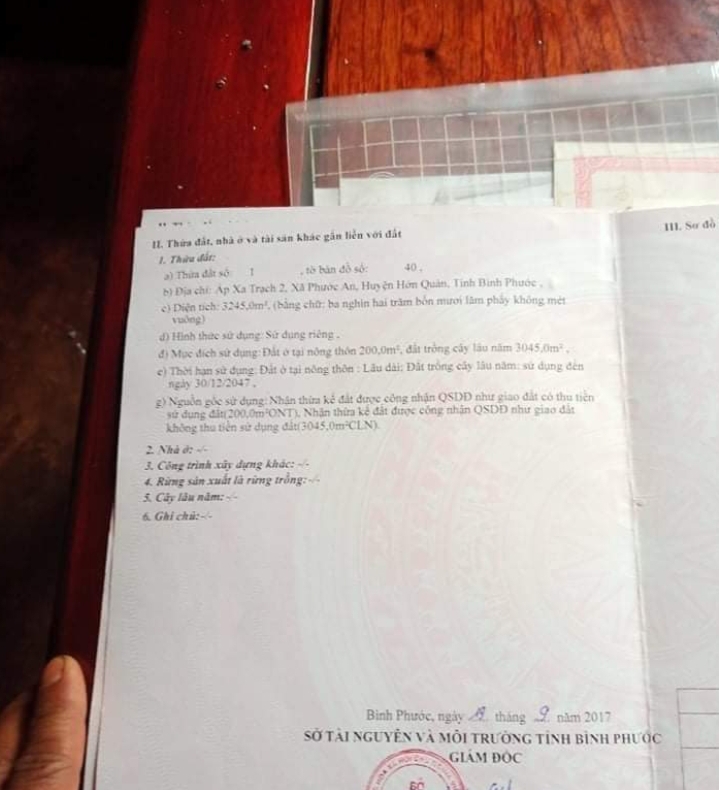 II. Thửa đất, nhà ở và tài sản khác gắn liền với đất
1. Thửa đất:
a) Thửa đất số: 1 , tờ bản đồ số: 40 ,
b) Địa chỉ: Ấp Xa Trạch 2, Xã Phước An, Huyện Hớn Quản, Tỉnh Bình Phước ,
c) Diện tích: 3245,0m², (bằng chữ: ba nghìn hai trăm bốn mươi lăm phẩy không mét
vuông)
d) Hình thức sử dụng: Sử dụng riêng ,
đ) Mục đích sử dụng: Đất ở tại nông thôn 200,0m², đất trồng cây lâu năm 3045,0m² ,
e) Thời hạn sử dụng: Đất ở tại nông thôn : Lâu dài; Đất trồng cây lâu năm: sử dụng đến
ngày 30/12/2047 ,
g) Nguồn gốc sử dụng: Nhận thừa kế đất được công nhận QSDĐ như giao đất có thu tiền
sử dụng đất(200,0m²ONT), Nhận thừa kế đất được công nhận QSDĐ như giao đất
không thu tiền sử dụng đất(3045,0m²CLN).
2. Nhà ở: -/-
3. Công trình xây dựng khác: -/-
4. Rừng sản xuất là rừng trồng: -/-
5. Cây lâu năm: -/-
6. Ghi chú: -/-
III. Sơ đồ
Bình Phước, ngày tháng 9 năm 2017
SỞ TÀI NGUYÊN VÀ MÔI TRƯỜNG TỈNH BÌNH PHƯỚC
GIÁM ĐỐC